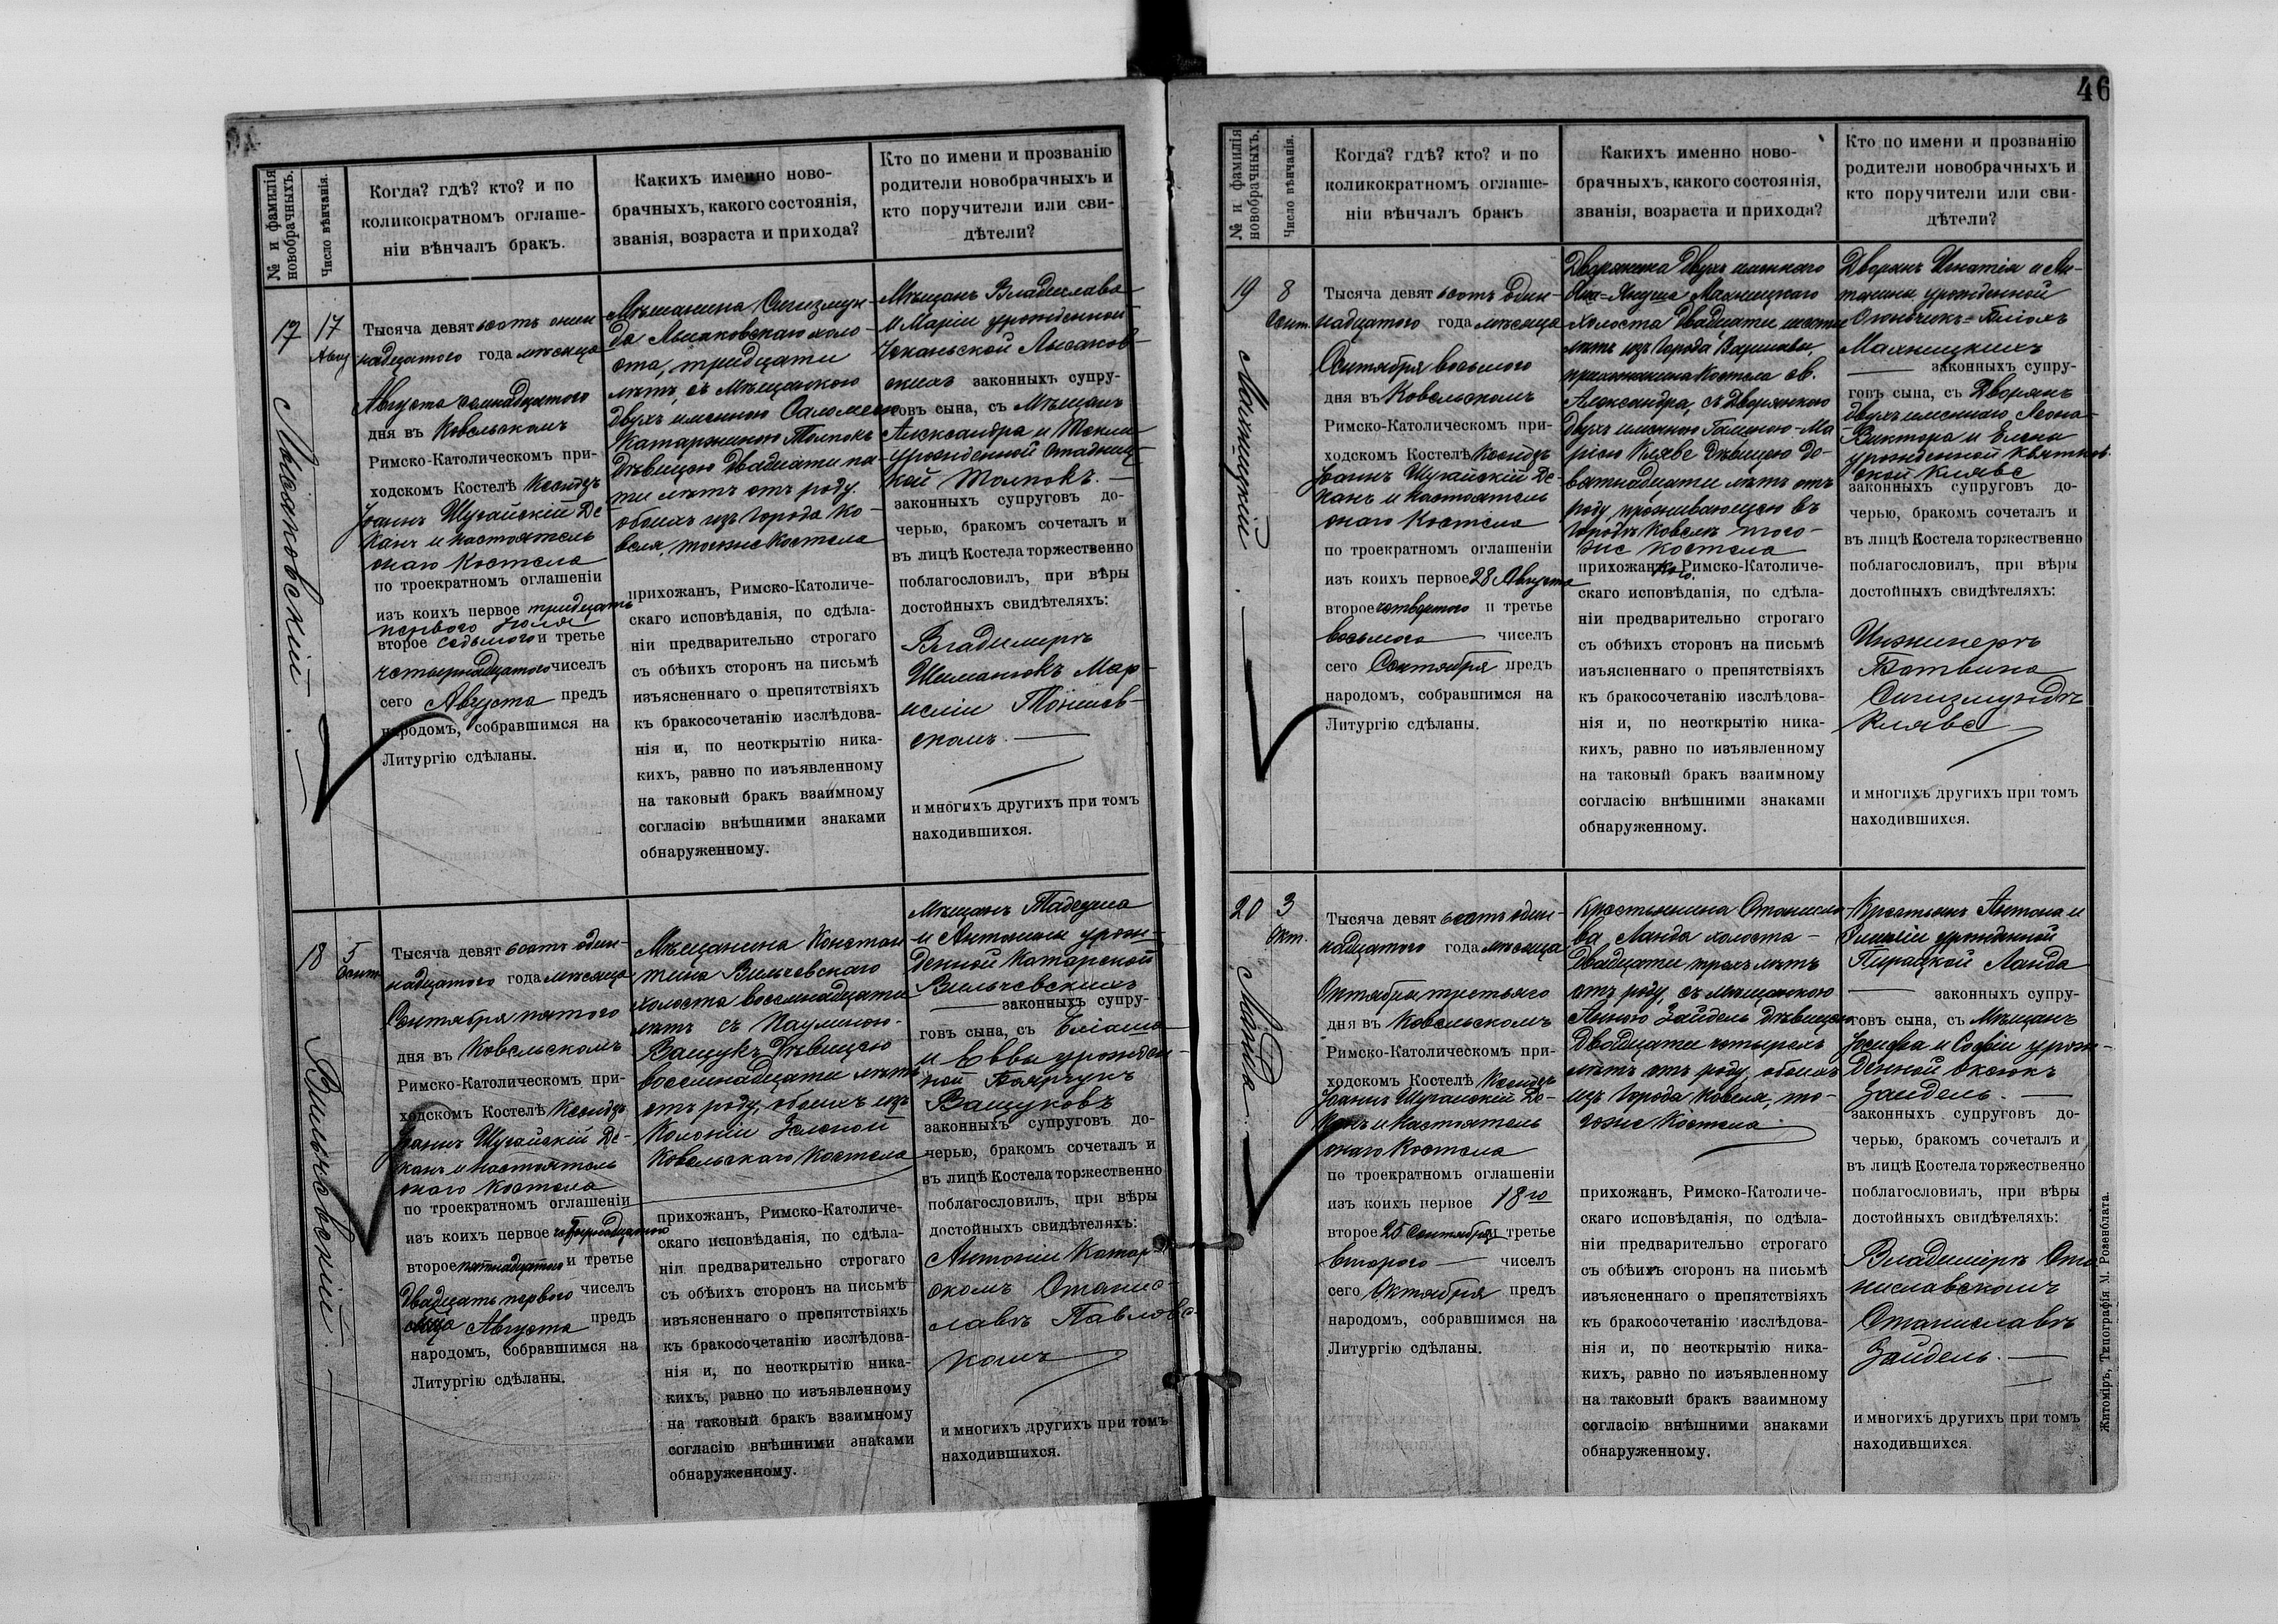 46
№ и фамилія новобрачныхъ.
Число вѣнчанія.
Когда? гдѣ? кто? и по
коликократномъ оглаше-
ніи вѣнчалъ бракъ.
Какихъ именно ново-
брачныхъ, какого состоянія,
званія, возраста и прихода?
Кто по имени и прозванію
родители новобрачныхъ и
кто поручители или сви-
дѣтели?
17
17
Тысяча девятьсотъ один
надцатого года мѣсяца
Августа семнадцатого
дня въ Ковельскомъ
Римско-Католическомъ при-
ходскомъ Костелѣ Ксендзъ
Іоаннъ Шугайскій Де
канъ и настоятель
онаго Костела
по троекратномъ оглашеніи
изъ коихъ первое тридцать
первого Іюля
второе седьмого и третье
четырнадцатого чиселъ
сего Августа предъ
народомъ, собравшимся на
Литургію сдѣланы.
Мѣщанина Сигизмун-
да холо-
ста, тридцати
лѣтъ, съ Мѣщанкою
двухъименною
дѣвицею двадцати пя-
ти лѣтъ отъ роду.
обоихъ изъ города Ко-
веля, тогоже Костела
прихожанъ, Римско-Католиче-
скаго исповѣданія, по сдѣла-
ніи предварительно строгаго
съ обѣихъ сторонъ на письмѣ
изъясненнаго о препятствіяхъ
къ бракосочетанію изслѣдова-
нія и, по неоткрытію ника-
кихъ, равно по изъявленному
на таковый бракъ взаимному
согласію внѣшними знаками
обнаруженному.
Мѣщанъ Владислава
и Маріи урожденной
законныхъ супру-
говъ сына, съ Мѣщанъ
Александра и Текли
урожденной
законныхъ супруговъ до-
черью, бракомъ сочеталъ и
въ лицѣ Костела торжественно
поблагословилъ, при вѣры
достойныхъ свидѣтеляхъ:
Владимиръ
и многихъ другихъ при томъ
находившихся.
18
5
Сент.
Вильчевскій.
Тысяча девятьсотъ один-
надцатого года мѣсяца
Сентября пятого
дня въ Ковельскомъ
Римско-Католическомъ при-
ходскомъ Костелѣ Ксендзъ
Іоаннъ Шугайскій Де-
канъ и настоятель
онаго Костела
по троекратномъ оглашеніи
изъ коихъ первое
второе и третье
двадцать первого чиселъ
Августа предъ
народомъ, собравшимся на
Литургію сдѣланы.
Мѣщанина Констан
тина Вильчевскаго
холоста восемнадцати
лѣтъ съ Паулиною
Ващукъ дѣвицею
восемнадцати лѣтъ
отъ роду, обоихъ изъ
Колоніи Зеленой
Ковельскаго Костела
прихожанъ, Римско-Католиче-
скаго исповѣданія, по сдѣла-
ніи предварительно строгаго
съ обѣихъ сторонъ на письмѣ
изъясненнаго о препятствіяхъ
къ бракосочетанію изслѣдова-
нія и, по неоткрытію ника-
кихъ, равно по изъявленному
на таковый бракъ взаимному
согласію внѣшними знаками
обнаруженному.
Мѣщанъ Тадеуша
и Антонины урож-
денной Катарской
Вильчевскихъ
законныхъ супру-
говъ сына, съ
и Еввы урожден-
ной
Ващуковъ
законныхъ супруговъ до-
черью, бракомъ сочеталъ и
въ лицѣ Костела торжественно
поблагословилъ, при вѣры
достойныхъ свидѣтеляхъ:
Антоніи Катар-
скомъ Станис-
лавъ Павловс-
комъ
и многихъ другихъ при томъ
находившихся.
№ и фамилія новобрачныхъ.
Число вѣнчанія.
Когда? гдѣ? кто? и по
коликократномъ оглаше-
ніи вѣнчалъ бракъ
Какихъ именно ново-
брачныхъ, какого состоянія,
званія, возраста и прихода?
Кто по имени и прозванію
родители новобрачныхъ и
кто поручители или сви-
дѣтели?
19
8
Сент.
Махницкій.
Тысяча девятьсотъ один-
надцатого года мѣсяца
Сентября восьмого
дня въ Ковельскомъ
Римско-Католическомъ при-
ходскомъ Костелѣ Ксендзъ
Іоаннъ Шугайскій Де-
канъ и настоятель
онаго Костела
по троекратномъ оглашеніи
изъ коихъ первое 28 Августа
второе четвертого и третье
восьмого чиселъ
сего Сентября предъ
народомъ, собравшимся на
Литургію сдѣланы.
Дворянина двухъименнаго
Махницкаго
холоста двадцати шести
лѣтъ изъ города Варшавы,
прихожанина Костела св.
Александра, съ Дворянкою
двухъименною Галиною-Ма
ріею Клявс дѣвицею де-
вятнадцати лѣтъ отъ
роду, проживающею въ
городѣ Ковелѣ того-
же костела
прихожан Римско-Католиче-
скаго исповѣданія, по сдѣла-
ніи предварительно строгаго
съ обѣихъ сторонъ на письмѣ
изъясненнаго о препятствіяхъ
къ бракосочетанію изслѣдова-
нія и, по неоткрытію ника-
кихъ, равно по изъявленному
на таковый бракъ взаимному
согласію внѣшними знаками
обнаруженному.
Дворянъ Игнатія и Ан-
тонины урожденной
Махницкихъ
законныхъ супру-
говъ сына, съ Дворянъ
двухъименнаго Леона-
Виктора и Елены
урожденной Квятков-
ской Клявс
законныхъ супруговъ до-
черью, бракомъ сочеталъ и
въ лицѣ Костела торжественно
поблагословилъ, при вѣры
достойныхъ свидѣтеляхъ:
Инженеръ
Ботвина
Сигизмундъ
Клявс
и многихъ другихъ при томъ
находившихся.
20
3
Окт.
Ланда
Тысяча девятьсотъ один-
надцатого года мѣсяца
Октября третьяго
дня въ Ковельскомъ
Римско-Католическомъ при-
ходскомъ Костелѣ Ксендзъ
Іоаннъ Шугайскій Де-
канъ и настоятель
онаго Костела
по троекратномъ оглашеніи
изъ коихъ первое 18го
второе 25 Сентября и третье
второго чиселъ
сего Октября предъ
народомъ, собравшимся на
Литургію сдѣланы.
Крестьянина Станисла-
ва Ланда холоста
двадцати трехъ лѣтъ
отъ роду, съ мѣщанкою
Анною Зайдель дѣвицею
двадцати четырехъ
лѣтъ отъ роду, обоихъ
изъ города Ковеля, то-
гоже Костела
прихожанъ, Римско-Католиче-
скаго исповѣданія, по сдѣла-
ніи предварительно строгаго
съ обѣихъ сторонъ на письмѣ
изъясненнаго о препятствіяхъ
къ бракосочетанію изслѣдова-
нія и, по неоткрытію ника-
кихъ, равно по изъявленному
на таковый бракъ взаимному
согласію внѣшними знаками
обнаруженному.
Крестьянъ Антона и
урожденной
Ланда
законныхъ супру-
говъ сына, съ Мѣщанъ
Іосифа и Софіи урож-
денной
Зайдель.
законныхъ супруговъ до-
черью, бракомъ сочеталъ и
въ лицѣ Костела торжественно
поблагословилъ, при вѣры
достойныхъ свидѣтеляхъ:
Владиміръ Ста
ниславскомъ
Станиславъ
Зайдель.
и многихъ другихъ при томъ
находившихся.
Житоміръ, Типографія М. Розенблата.